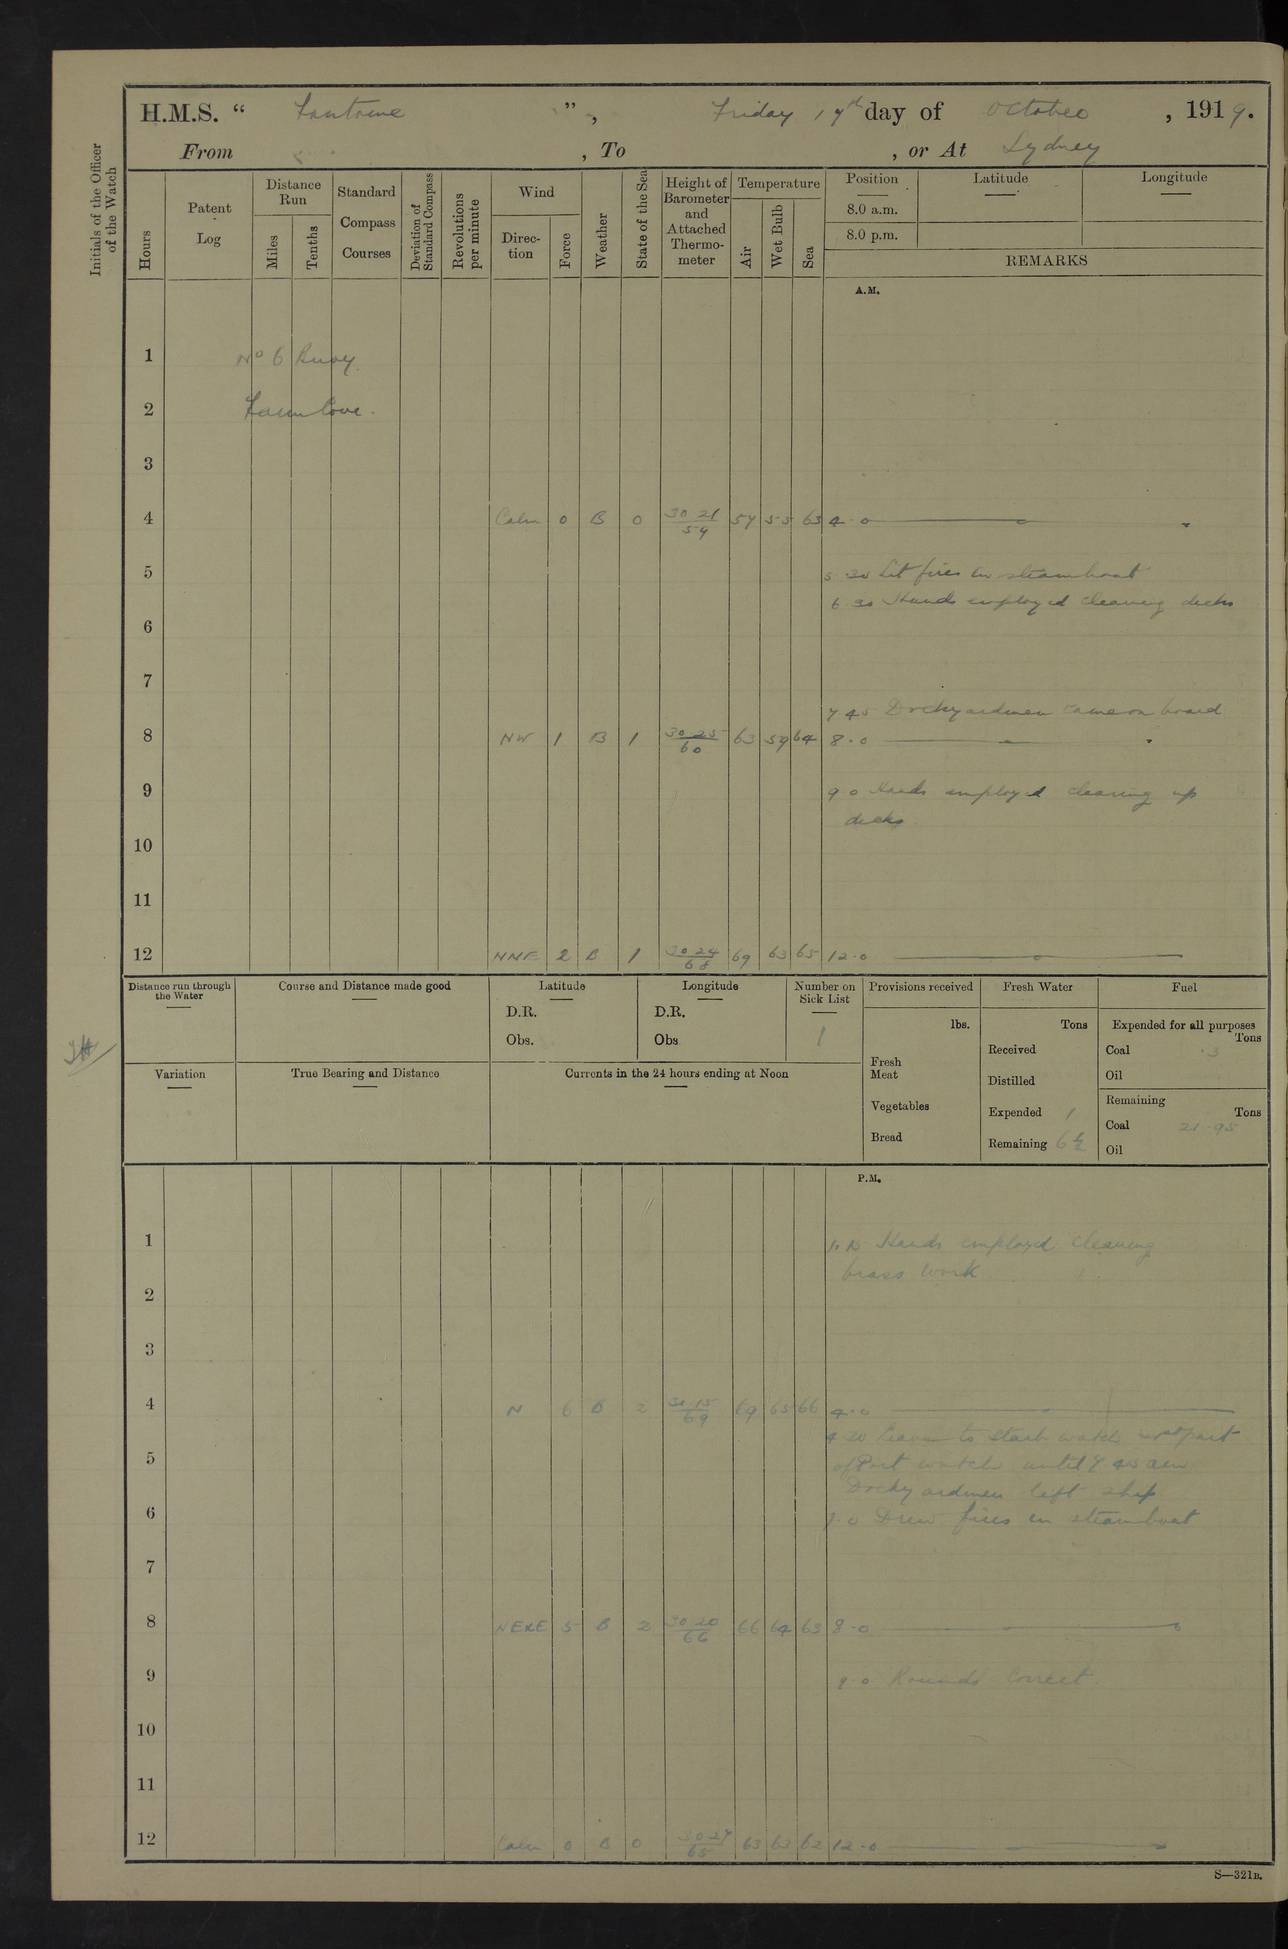 H.M.S. “ Fantome ”, Friday 17th day of October, 1919.
From , To , or At Sydney
Initials of the Officer of the Watch
Hours
Patent Log
Distance Run
Miles
Tenths
Standard Compass Courses
Deviation of Standard Compass
Revolutions per minute
Wind
Direction
Force
Weather
State of the Sea
Height of Barometer and Attached Thermometer
Temperature
Air
Wet Bulb
Sea
Position Latitude Longitude
8.0 a.m.
8.0 p.m.
REMARKS
A.M.
1 No 6 Buoy
2 Farm Cove.
3
4 Calm 0 B 0 30 21/54 57 55 63 4.0
5 5 20 Lit fires in steamboat
6 30 Hands employed cleaning decks
6
7
7 45 Dockyardmen came on board
8 NW 1 B 1 30 25/60 63 59 64 8.0
9 9 0 Hands employed clearing up
decks
10
11
12 NNE 2 B 1 30 24/68 69 63 65 12.0
Distance run through the Water
Course and Distance made good
Latitude
D.R.
Obs.
Longitude
D.R.
Obs
Number on Sick List
1
Provisions received
lbs.
Fresh Meat
Vegetables
Bread
Fresh Water
Tons
Received
Distilled
Expended 1
Remaining 6½
Fuel
Expended for all purposes
Tons
Coal .3
Oil
Remaining
Tons
Coal 21.95
Oil
Variation
True Bearing and Distance
Currents in the 24 hours ending at Noon
P.M.
1 1.15 Hands employed cleaning
brass work
2
3
4 N 6 B 2 30 15/69 69 65 66 4.0
4 20 Leave to Starb watch part
5 of Port watch until 7 45 am
Dockyardmen left ship
6 7.0 Drew fires in steamboat
7
8 NExE 5 B 2 30 20/66 66 64 63 8.0
9 9 0 Rounds Correct.
10
11
12 Calm 0 B 0 30 27/65 63 62 12.0
S—321B.